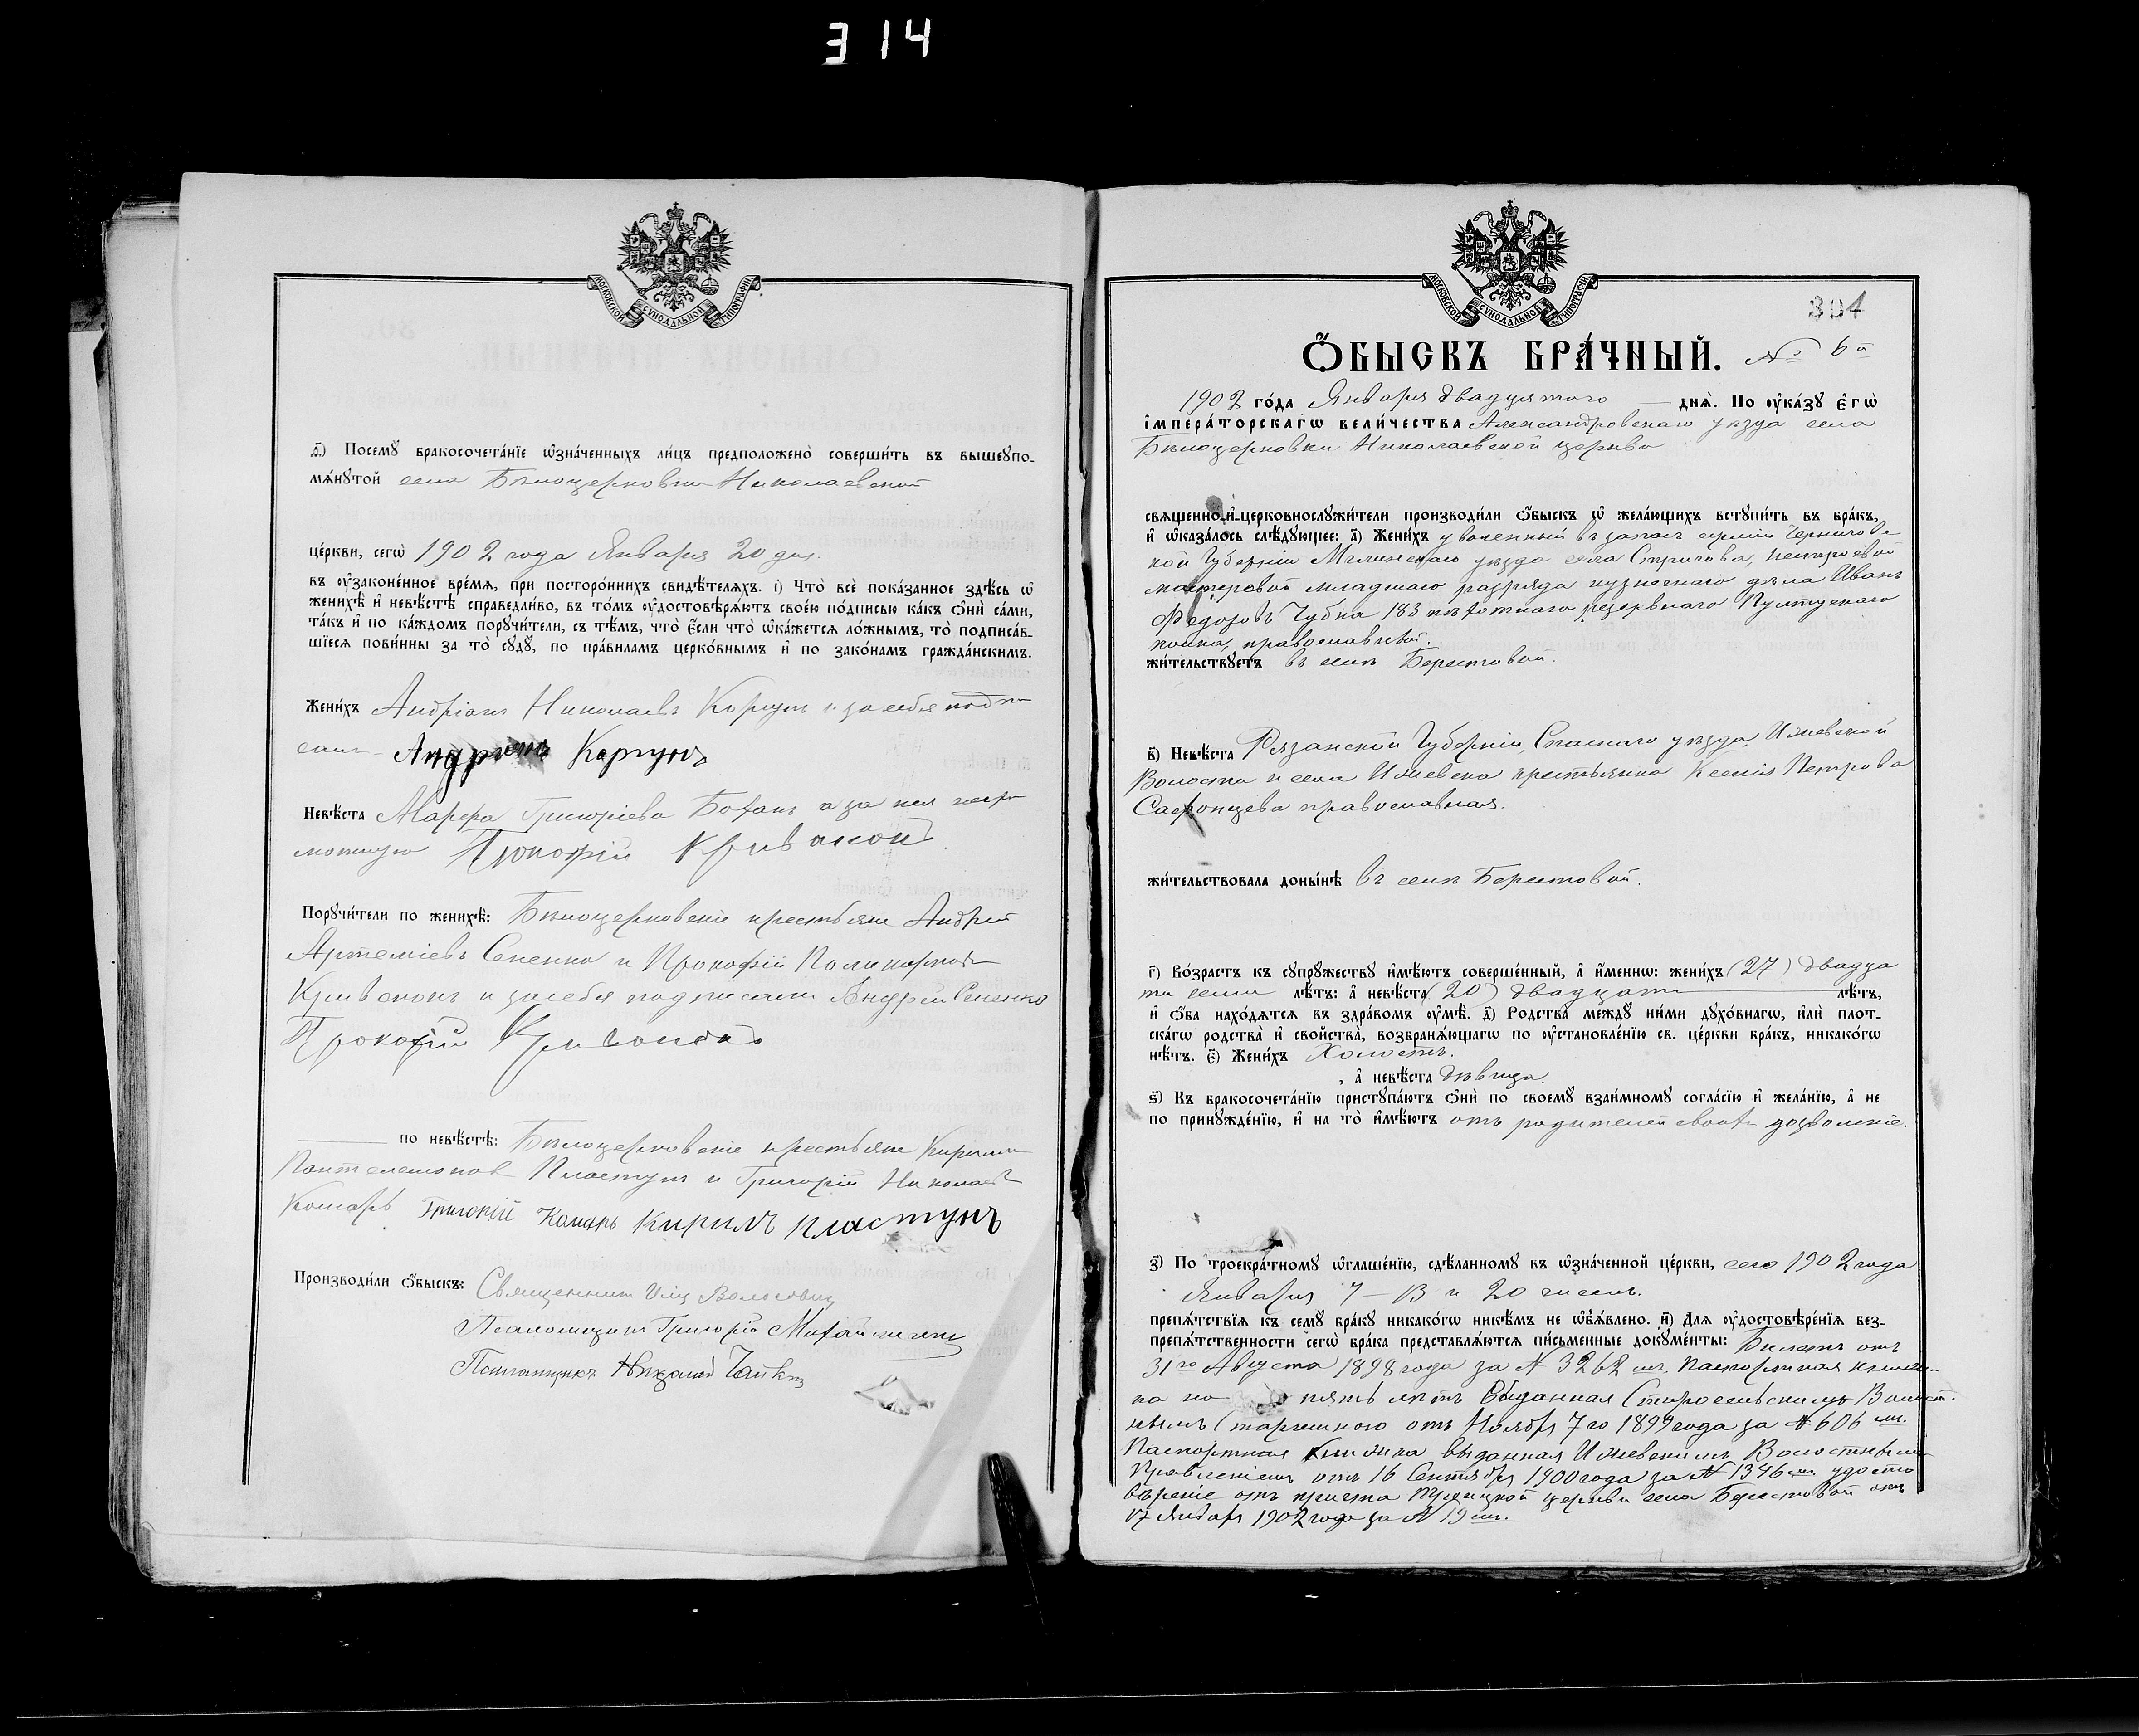 314
МОСКОВСКОЙ СѴНОДАЛЬНОЙ ТИПОГРАФІИ
ѳ҃) Посемꙋ̀ бракосочета́нїе ѡ҆зна́ченныхъ ли́цъ предположено̀ соверши́ть въ вышеꙋпо-
мѧ́нꙋтой села Бѣлоцерковки Николаевской
це́ркви, сегѡ̀ 1902 года Января 20 дня.
въ ᲂу҆зако́ненное вре́мѧ, при посторо́ннихъ свидѣ́телѧхъ. і҃) Что̀ всѐ пока́занное здѣ́сь ѡ҆
женихѣ̀ и҆ невѣ́стѣ справедли́во, въ то́мъ ᲂу҆достовѣрѧ́ютъ свое́ю по́дписью ка́къ ѻ҆нѝ са́ми,
та́къ и҆ по ка́ждомъ порꙋчи́тели, съ тѣ́мъ, что̀ є҆́сли что̀ ѡ҆ка́жетсѧ ло́жнымъ, то̀ подписа́в-
шїесѧ пови́нны за то̀ сꙋдꙋ̀, по пра́виламъ церко́внымъ и҆ по зако́намъ гражда́нскимъ.
Жени́хъ Андріанъ Николаевъ Коргунъ и за себя подпи
салъ Андріянъ Коргунъ
Невѣ́ста Марѳа Григоріева Боханъ а за нея негра
мотную Прокофій Кривоконь
Порꙋчи́тели по женихѣ̀: Бѣлоцерковскіе крестьяне Андрей
Артеміевъ Сененко и Прокофій Поликарповъ
Кривоконь и за себя подписали Андрей Сененко
Прокофій Кривоконь
по невѣ́стѣ: Бѣлоцерковскіе крестьяне Кирилъ
Пантелемоновъ Пластунъ и Григорій Николаевъ
Комарь Григорій Комарь Кирилъ Пластунъ
Производи́ли ѻ҆́быскъ: Священникъ
Псаломщикъ Григорій
Псаломщикъ Николай
МОСКОВСКОЙ СѴНОДАЛЬНОЙ ТИПОГРАФІИ
304
Ѻ҆́БЫСКЪ БРА́ЧНЫЙ. № 6й
1902 го́да Января двадцятого днѧ̀. По ᲂу҆ка́зꙋ є҆гѡ̀
і҆мпера́торскагѡ вели́чества Александровскаго уѣзда села
Бѣлоцерковки Николаевской церкви
свѧще́нно-и҆-церковнослꙋжи́тели производи́ли ѻ҆́быскъ ѡ҆ жела́ющихъ встꙋпи́ть въ бра́къ,
и҆ ѡ҆каза́лось слѣ́дꙋющее: а҃) Жени́хъ уволенный въ запасъ арміи Черниговс
кой Губерніи Мглинскаго уѣзда села Стригова, нестроевой
мастеровой младшаго разряда кузнечнаго дѣла Иванъ
Федоровъ Чубка 183 пѣхотнаго резервнаго Пултускаго
полка, православный.
жи́тельствꙋетъ въ селѣ Берестовой.
в҃) Невѣ́ста Рязанской Губерніи, Спаскаго уѣзда, Ижевской
Волости и села Ижевска крестьянка Ксенія Петрова
Сафонцева православная.
жи́тельствовала доны́нѣ въ селѣ Берестовой.
г҃) Во́зрастъ къ сꙋпрꙋ́жествꙋ и҆мѣ́ютъ соверше́нный, а҆ и҆́меннѡ: жени́хъ (27) двадца
ти семи лѣ́тъ: а҆ невѣ́ста (20) двадцати лѣ́тъ,
и҆ ѻ҆́ба нахо́дѧтсѧ въ здра́вомъ ᲂу҆мѣ̀. д҃) Родства̀ междꙋ̀ ни́ми дꙋхо́внагѡ, и҆лѝ плот-
ска́гѡ родства̀ и҆ сво́йства, возбранѧ́ющагѡ по ᲂу҆становле́нїю св. це́ркви бра́къ, никако́гѡ
нѣ́тъ. є҃) Жени́хъ Холостъ.
, а҆ невѣ́ста дѣвица.
ѕ҃) Къ бракосочета́нїю пристꙋпа́ютъ ѻ҆нѝ по своемꙋ̀ взаи́мномꙋ согла́сїю и҆ жела́нїю, а҆ не
по принꙋжде́нїю, и҆ на то̀ и҆мѣ́ютъ отъ родителей своихъ дозволеніе.
з҃) По троекра́тномꙋ ѡ҆глаше́нїю, сдѣ́ланномꙋ въ ѡ҆зна́ченной це́ркви, сего 1902 года
Января 7 – 13 и 20 числъ.
препѧ́тствїѧ къ семꙋ̀ бра́кꙋ никако́гѡ никѣ́мъ не ѡ҆б̾ѧ́влено. и҃) Длѧ ᲂу҆достовѣре́нїѧ без-
препѧ́тственности сегѡ̀ бра́ка представлѧ́ютсѧ пи́сьменные докꙋме́нты: Билетъ отъ
31го Августа 1898 года за № 3262 мъ. Паспортная книж-
ка на пять лѣтъ выданная Старосельскимъ Волост.
нымъ Старшиною отъ Ноября 7го 1899 года за № 606 мъ.
Паспортная книжка выданная Ижевскимъ Волостнымъ
Правленіемъ отъ 16 Сентября 1900 года за № 1346 мъ. удосто
вѣреніе отъ причта церкви села Берестовой отъ
17 Января 1902 года за № 19 мъ.